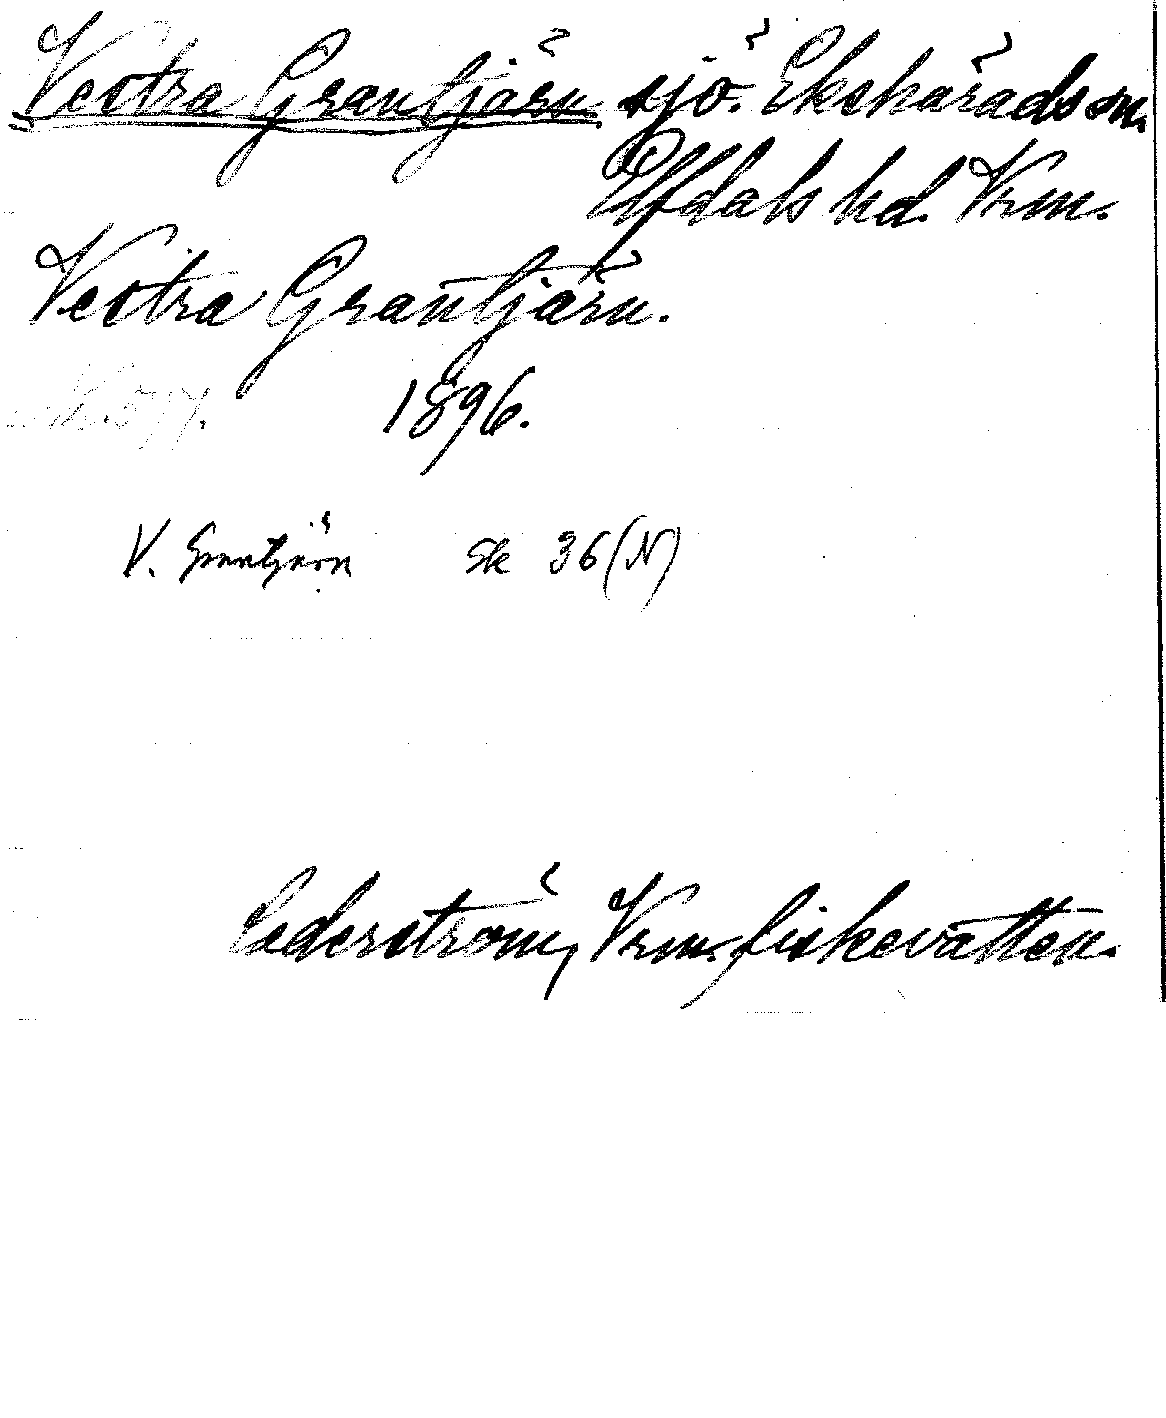 Vestra Grantjärn sjö. Ekshärads sn.
Elfdals hd. Vrm.
Vestra Grantjärn.
1896.
V. Grantjärn Sk 36 (N)
Cederström, Vrm. fiskevatten.